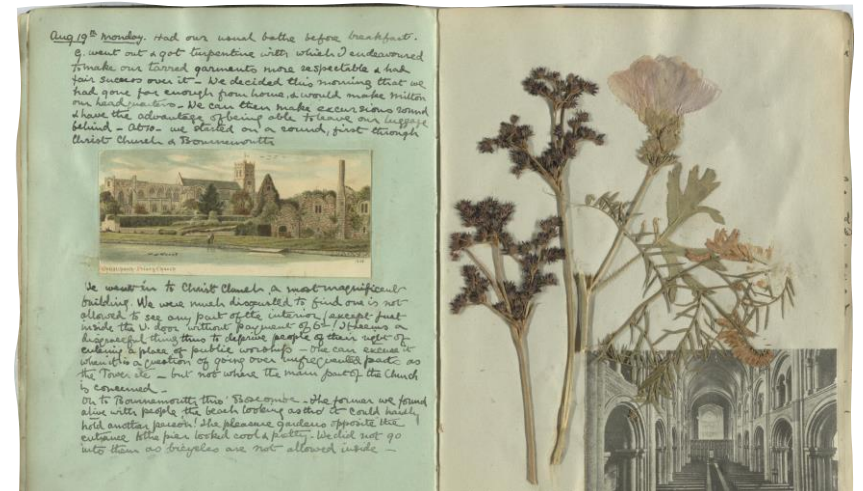 Aug 19th Monday. Had our usual bathe before breakfast.
G. went out & got turpentine with which I endeavoured
to make our tarred garments more respectable & had
fair success over it – We decided this morning that we
had gone far enough from home, & would make Milton
our headquarters – We can then make excursions round
& have the advantage of being able to leave our luggage
behind – At 10 – we started on a round, first through
Christ Church & Bournemouth
Christchurch Priory Church
We went in to Christ Church, a most magnificent
building. We were much disgusted to find one is not
allowed to see any part of the interior (except just
inside the door without payment of 6d! It seems a
disgraceful thing thus to deprive people of their right of
entering a place of public worship – One can excuse it
when it is a question of going over unfrequented parts as
the Tower etc – but not where the main part of the Church
is concerned –
On to Bournemouth thro' Boscombe – The former we found
alive with people, the beach looking as tho' it could hardly
hold another person! The pleasure gardens opposite the
entrance to the pier looked cool & pretty – We did not go
into them as bicycles are not allowed inside –